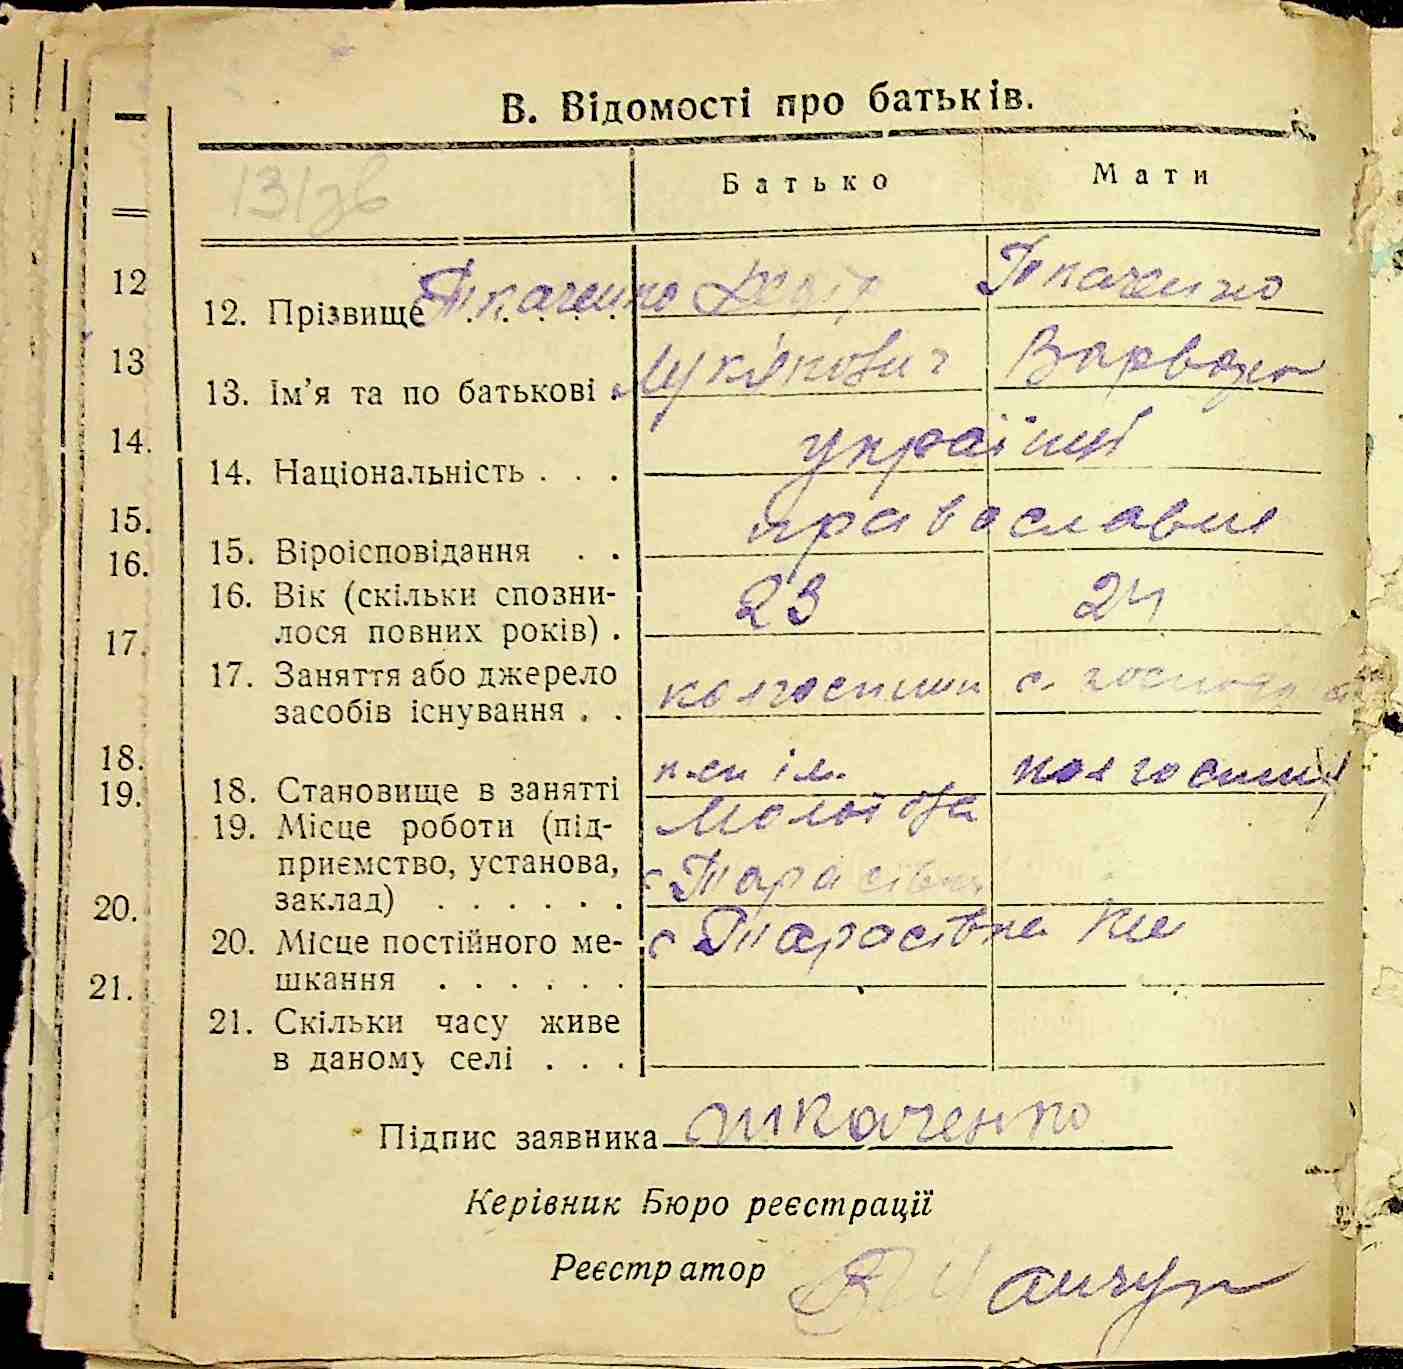 В. Відомості про батьків.
Батько Мати
12
12. Прізвище Ткаченко Ткаченко
13
13. Ім'я та по батькові Лук'янович Варвара
14.
14. Національність . . . українці
15.
15. Віроісповідання . . православне
16.
16. Вік (скільки спозни-
лося повних років) . 23 24
17.
17. Заняття або джерело
засобів існування . . колгоспник с. господар
18.
18. Становище в занятті колгоспниц
19.
19. Місце роботи (під- Молотова
приємство, установа,
заклад) . . . . . . с Тарасівка
20.
20. Місце постійного ме- с Тарасівка
шкання . . . . . .
21.
21. Скільки часу живе
в даному селі . . .
Підпис заявника Ткаченко
Керівник Бюро реєстрації
Реєстратор